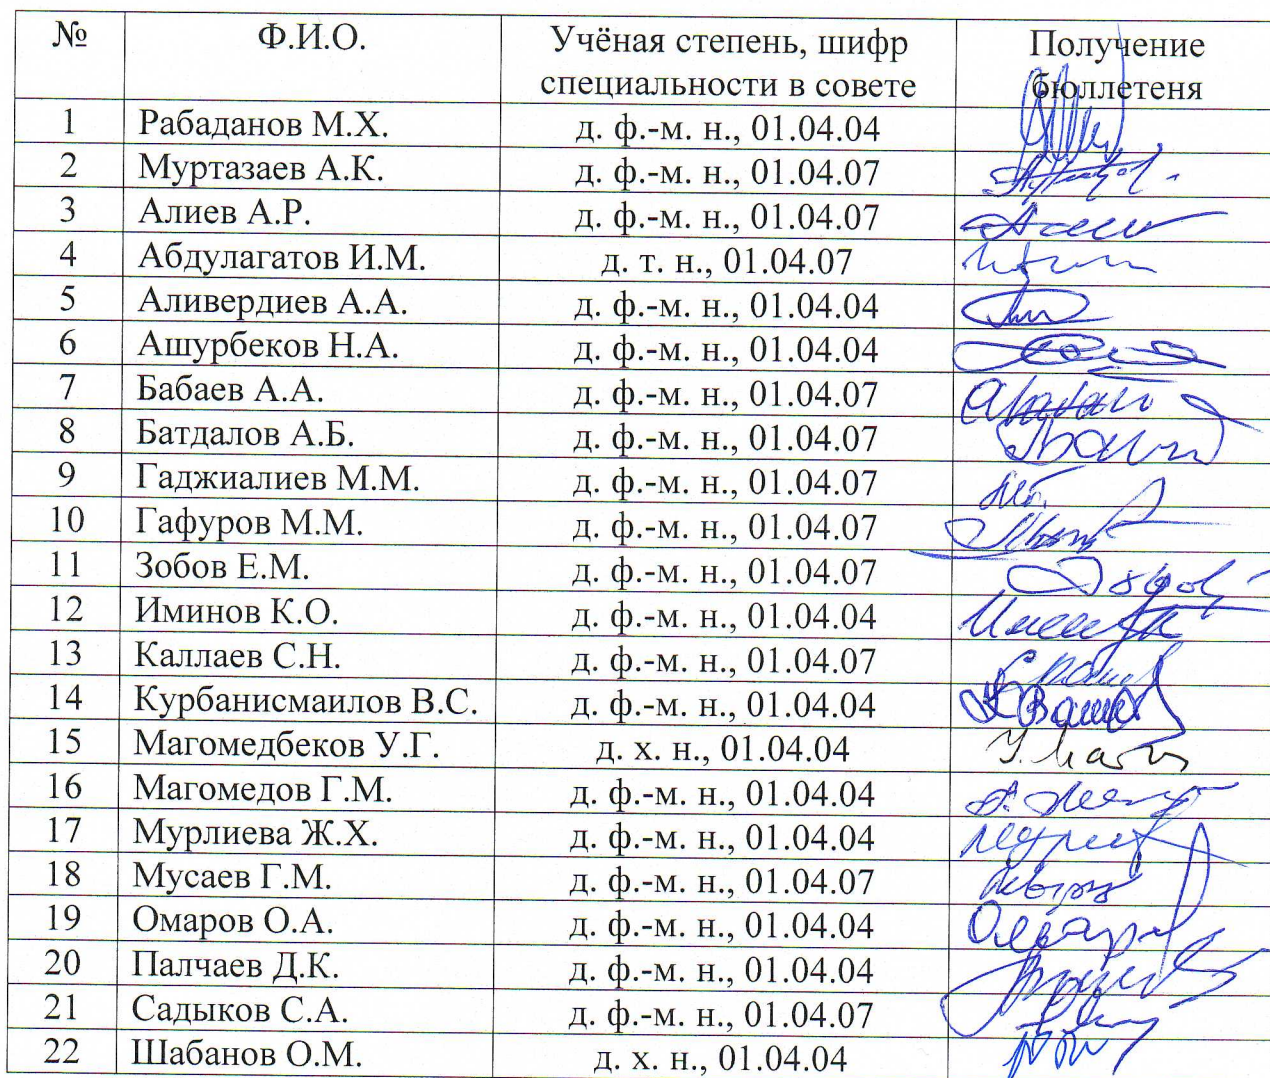 № Ф.И.О. Учёная степень, шифр специальности в совете Получение бюллетеня
1 Рабаданов М.Х. д. ф.-м. н., 01.04.04
2 Муртазаев А.К. д. ф.-м. н., 01.04.07
3 Алиев А.Р. д. ф.-м. н., 01.04.07
4 Абдулагатов И.М. д. т. н., 01.04.07
5 Аливердиев А.А. д. ф.-м. н., 01.04.04
6 Ашурбеков Н.А. д. ф.-м. н., 01.04.04
7 Бабаев А.А. д. ф.-м. н., 01.04.07
8 Батдалов А.Б. д. ф.-м. н., 01.04.07
9 Гаджиалиев М.М. д. ф.-м. н., 01.04.07
10 Гафуров М.М. д. ф.-м. н., 01.04.07
11 Зобов Е.М. д. ф.-м. н., 01.04.07
12 Иминов К.О. д. ф.-м. н., 01.04.04
13 Каллаев С.Н. д. ф.-м. н., 01.04.07
14 Курбанисмаилов В.С. д. ф.-м. н., 01.04.04
15 Магомедбеков У.Г. д. х. н., 01.04.04
16 Магомедов Г.М. д. ф.-м. н., 01.04.04
17 Мурлиева Ж.Х. д. ф.-м. н., 01.04.04
18 Мусаев Г.М. д. ф.-м. н., 01.04.07
19 Омаров О.А. д. ф.-м. н., 01.04.04
20 Палчаев Д.К. д. ф.-м. н., 01.04.04
21 Садыков С.А. д. ф.-м. н., 01.04.07
22 Шабанов О.М. д. х. н., 01.04.04